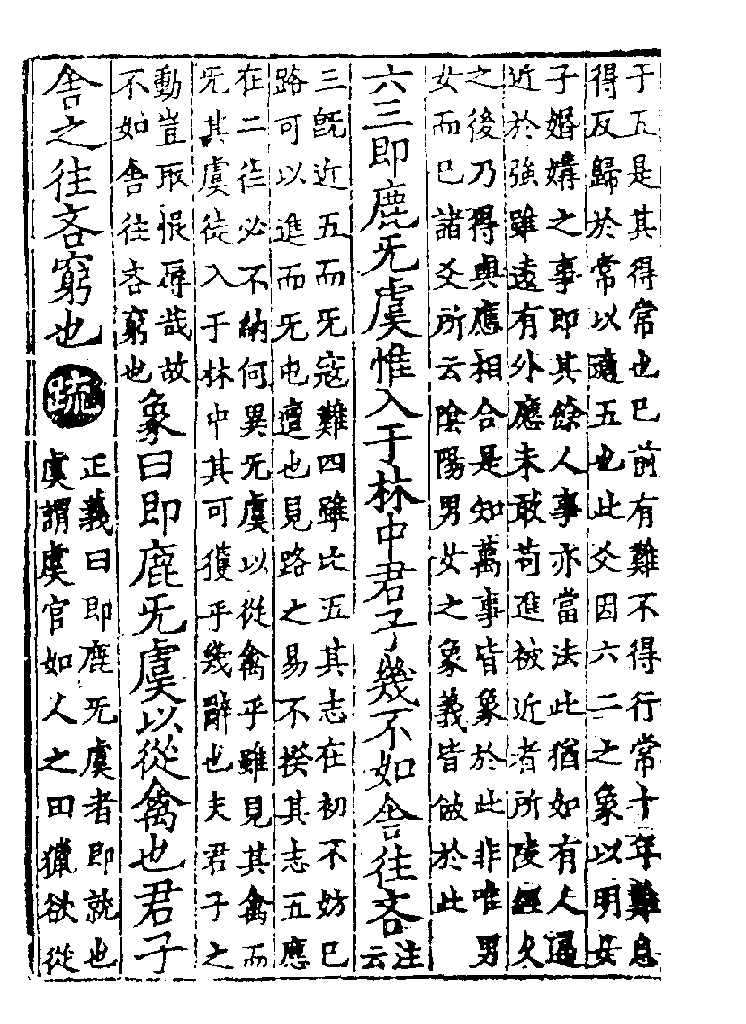 于五是其得常也巳前有難不得行常十年難息
得反歸於常以隨五也此爻因六二之象以明女
子婚媾之事即其餘人事亦當法此猶如有人逼
近於強雖遠有外應未敢苟進被近者所陵經久
之後乃得與應相合是知萬事皆象於此非唯男
女而巳諸爻所云陰陽男女之象義皆倣於此
六三即鹿旡虞惟入于林中君子幾不如舎往吝
注云
三旣近五而旡寇難四雖比五其志在初不妨巳
路可以進而旡屯邅也見路之易不揆其志五應
在二往必不納何異旡虞以從禽乎雖見其禽而
旡其虞徒入于林中其可獲乎幾辭也夫君子之
動豈取恨辱哉故
不如舎往吝窮也
象曰即鹿旡虞以從禽也君子
舎之往吝窮也
疏
正義曰即鹿旡虞者即就也
虞謂虞官如人之田獵欲從